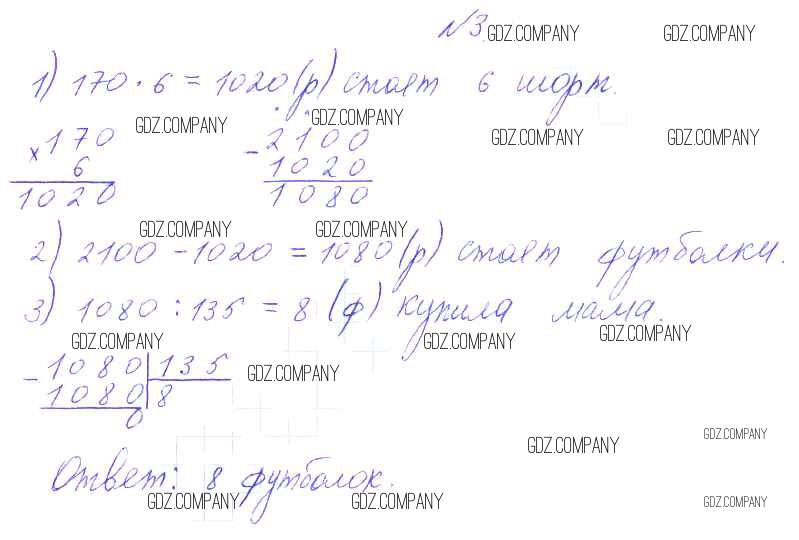 №3. GDZ.COMPANY GDZ.COMPANY
1) 170 · 6 = 1020 (р) стоят 6 шорт.
GDZ.COMPANY GDZ.COMPANY
× 170 − 2100 GDZ.COMPANY GDZ.COMPANY
6 1020
1020 1080
GDZ.COMPANY GDZ.COMPANY
2) 2100 − 1020 = 1080 (р) стоят футболки.
3) 1080 : 135 = 8 (ф) купила мама.
GDZ.COMPANY GDZ.COMPANY GDZ.COMPANY
− 1080 135 GDZ.COMPANY
1080 8
0
GDZ.COMPANY GDZ.COMPANY
Ответ: 8 футболок.
GDZ.COMPANY GDZ.COMPANY GDZ.COMPANY